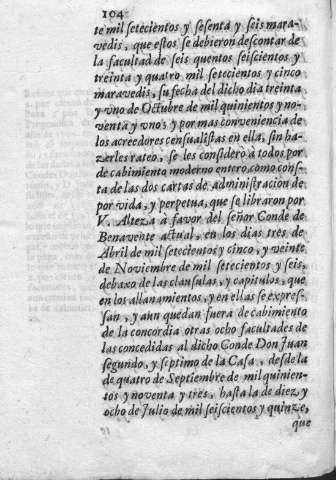 104
te mil setecientos y sesenta y seis mara-
vedis, que estos se debieron descontar de
la facultad de seis quentos seiscientos y
treinta y quatro mil setecientos y cinco
maravedis, su fecha del dicho dia treinta
y vno de Octubre de mil quinientos y no-
venta y vno; y por mas conveniencia de
los acreedores censualistas en ella, sin ha-
zerles rateo, se les considerò à todos por
de cabimiento moderno entero, como cons-
ta de las dos cartas de administracion de
por vida, y perpetua, que se libraron por
V. Alteza à favor del señor Conde de
Benavente actual, en los dias tres de
Abril de mil setecientos y cinco, y veinte
de Noviembre de mil setecientos y seis,
debaxo de las clausulas, y capitulos, que
en los allanamientos, y en ellas se expres-
san, y aun quedan fuera de cabimiento
de la concordia otras ocho facultades de
las concedidas al dicho Conde Don Juan
segundo, y septimo de la Casa, desde la
de quatro de Septiembre de mil quinien-
tos y noventa y tres, hasta la de diez y
ocho de Julio de mil seiscientos y quinze,
que